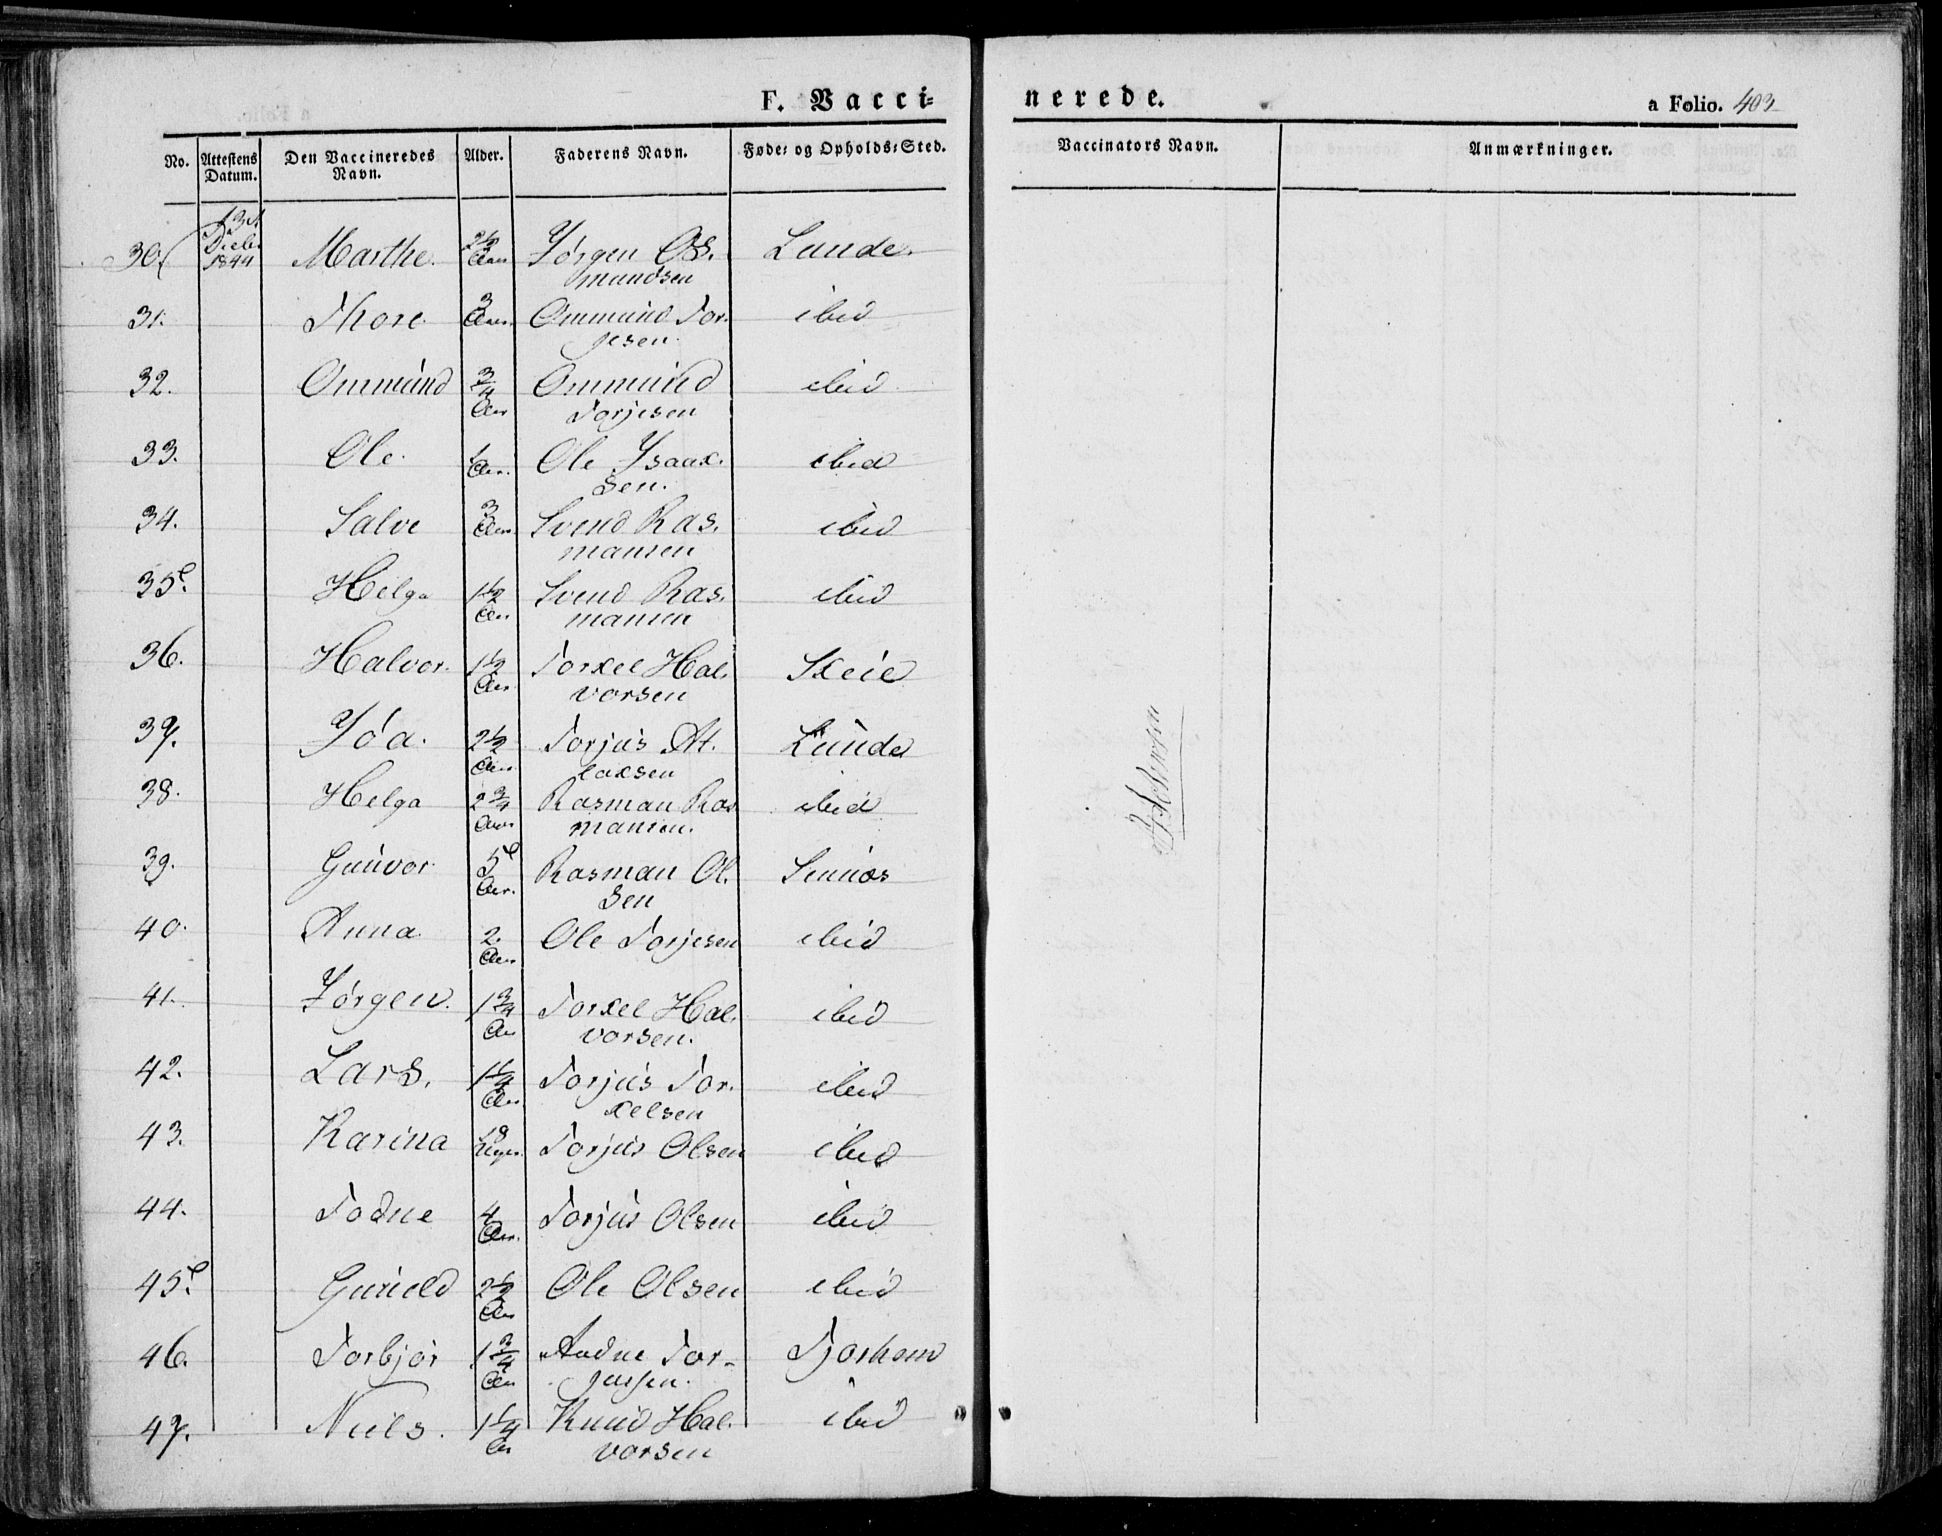 F. Vacci=
nerede.
a Folio. 403
No.
Attestens Datum.
Den Vaccineredes Navn.
Alder.
Faderens Navn.
Føde= og Opholds=Sted.
Vaccinators Navn.
Anmærkninger.
13de
Decbr
30. 1844 Marthe. 2½ Aar Jørgen Os.
mundsen Lunde.
31. Thore 3 Aar. Ommund Tor.
jesen. ibid
32. Ommund ¾ Aar Ommund
Torjesen ibid
33. Ole. Aar. Ole Isaax.
sen. ibid
34. Salve 3 Aar. Svend Ras.
mansen ibid
35. Helga 1½ Aar Svend Ras.
mansen ibid
36. Halvor. 1½ Aar. Torxel Hal.
vorsen Sxeie
37. Jóa. 2½ Aar. Torjus At.
laxsen Lunde
38. Helga 2¾ Aar Rasman Ras
mansen. ibid
39. Gunvor 5 Aar. Rasman Ol.
sen Sinnes
40. Anna 2. Aar Ole Torjesen ibid
41. Jørgen. 1¾ Aar Torxel Hal.
vorsen. ibid
42. Lars. 1¼ Aar. Torjus Tor.
xelsen ibid
43. Karina 18 Uger. Torjus Olsen ibid
44. Todne 4 Aar. Torjus Olsen ibid
45. Gunild 2½ Aar Ole Olsen ibid
46. Torbjør 1¾ Aar Aadne Tor-
jussen. Tjorhom
47. Niels. 1¼ Aar Knud Hal.
vorsen ibid